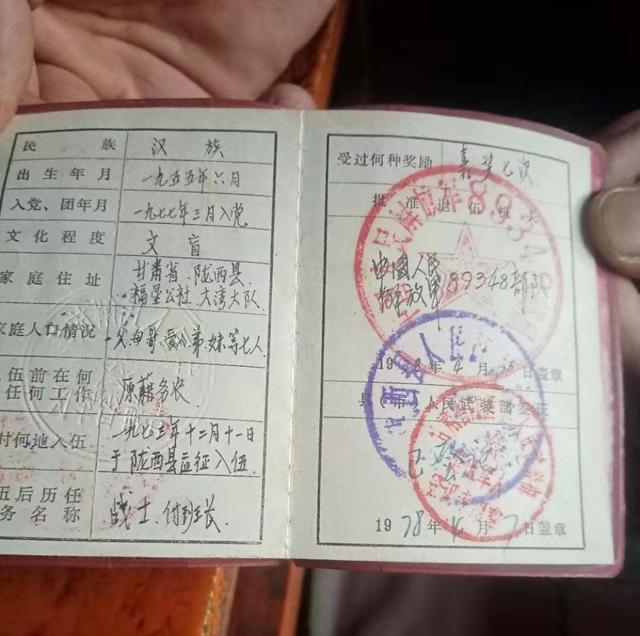 民 族 汉 族
出生年月 一九五五年六月
入党、团年月 一九七七年三月入党
文化程度 文盲
家庭住址 甘肃省陇西县
福星公社大湾大队
家庭人口情况 父母哥爱人弟妹等七人
伍前在何
任何工作 原藉务农
时何地入伍 一九七三年十二月十一日
于陇西县应征入伍
伍后历任
务名称 战士.付班长.
受过何种奖励 嘉奖七次
批准退伍
中國人民
解放军89348部队
19 年4月 日盖章
县(市)人民武装部
1978年 月 日盖章